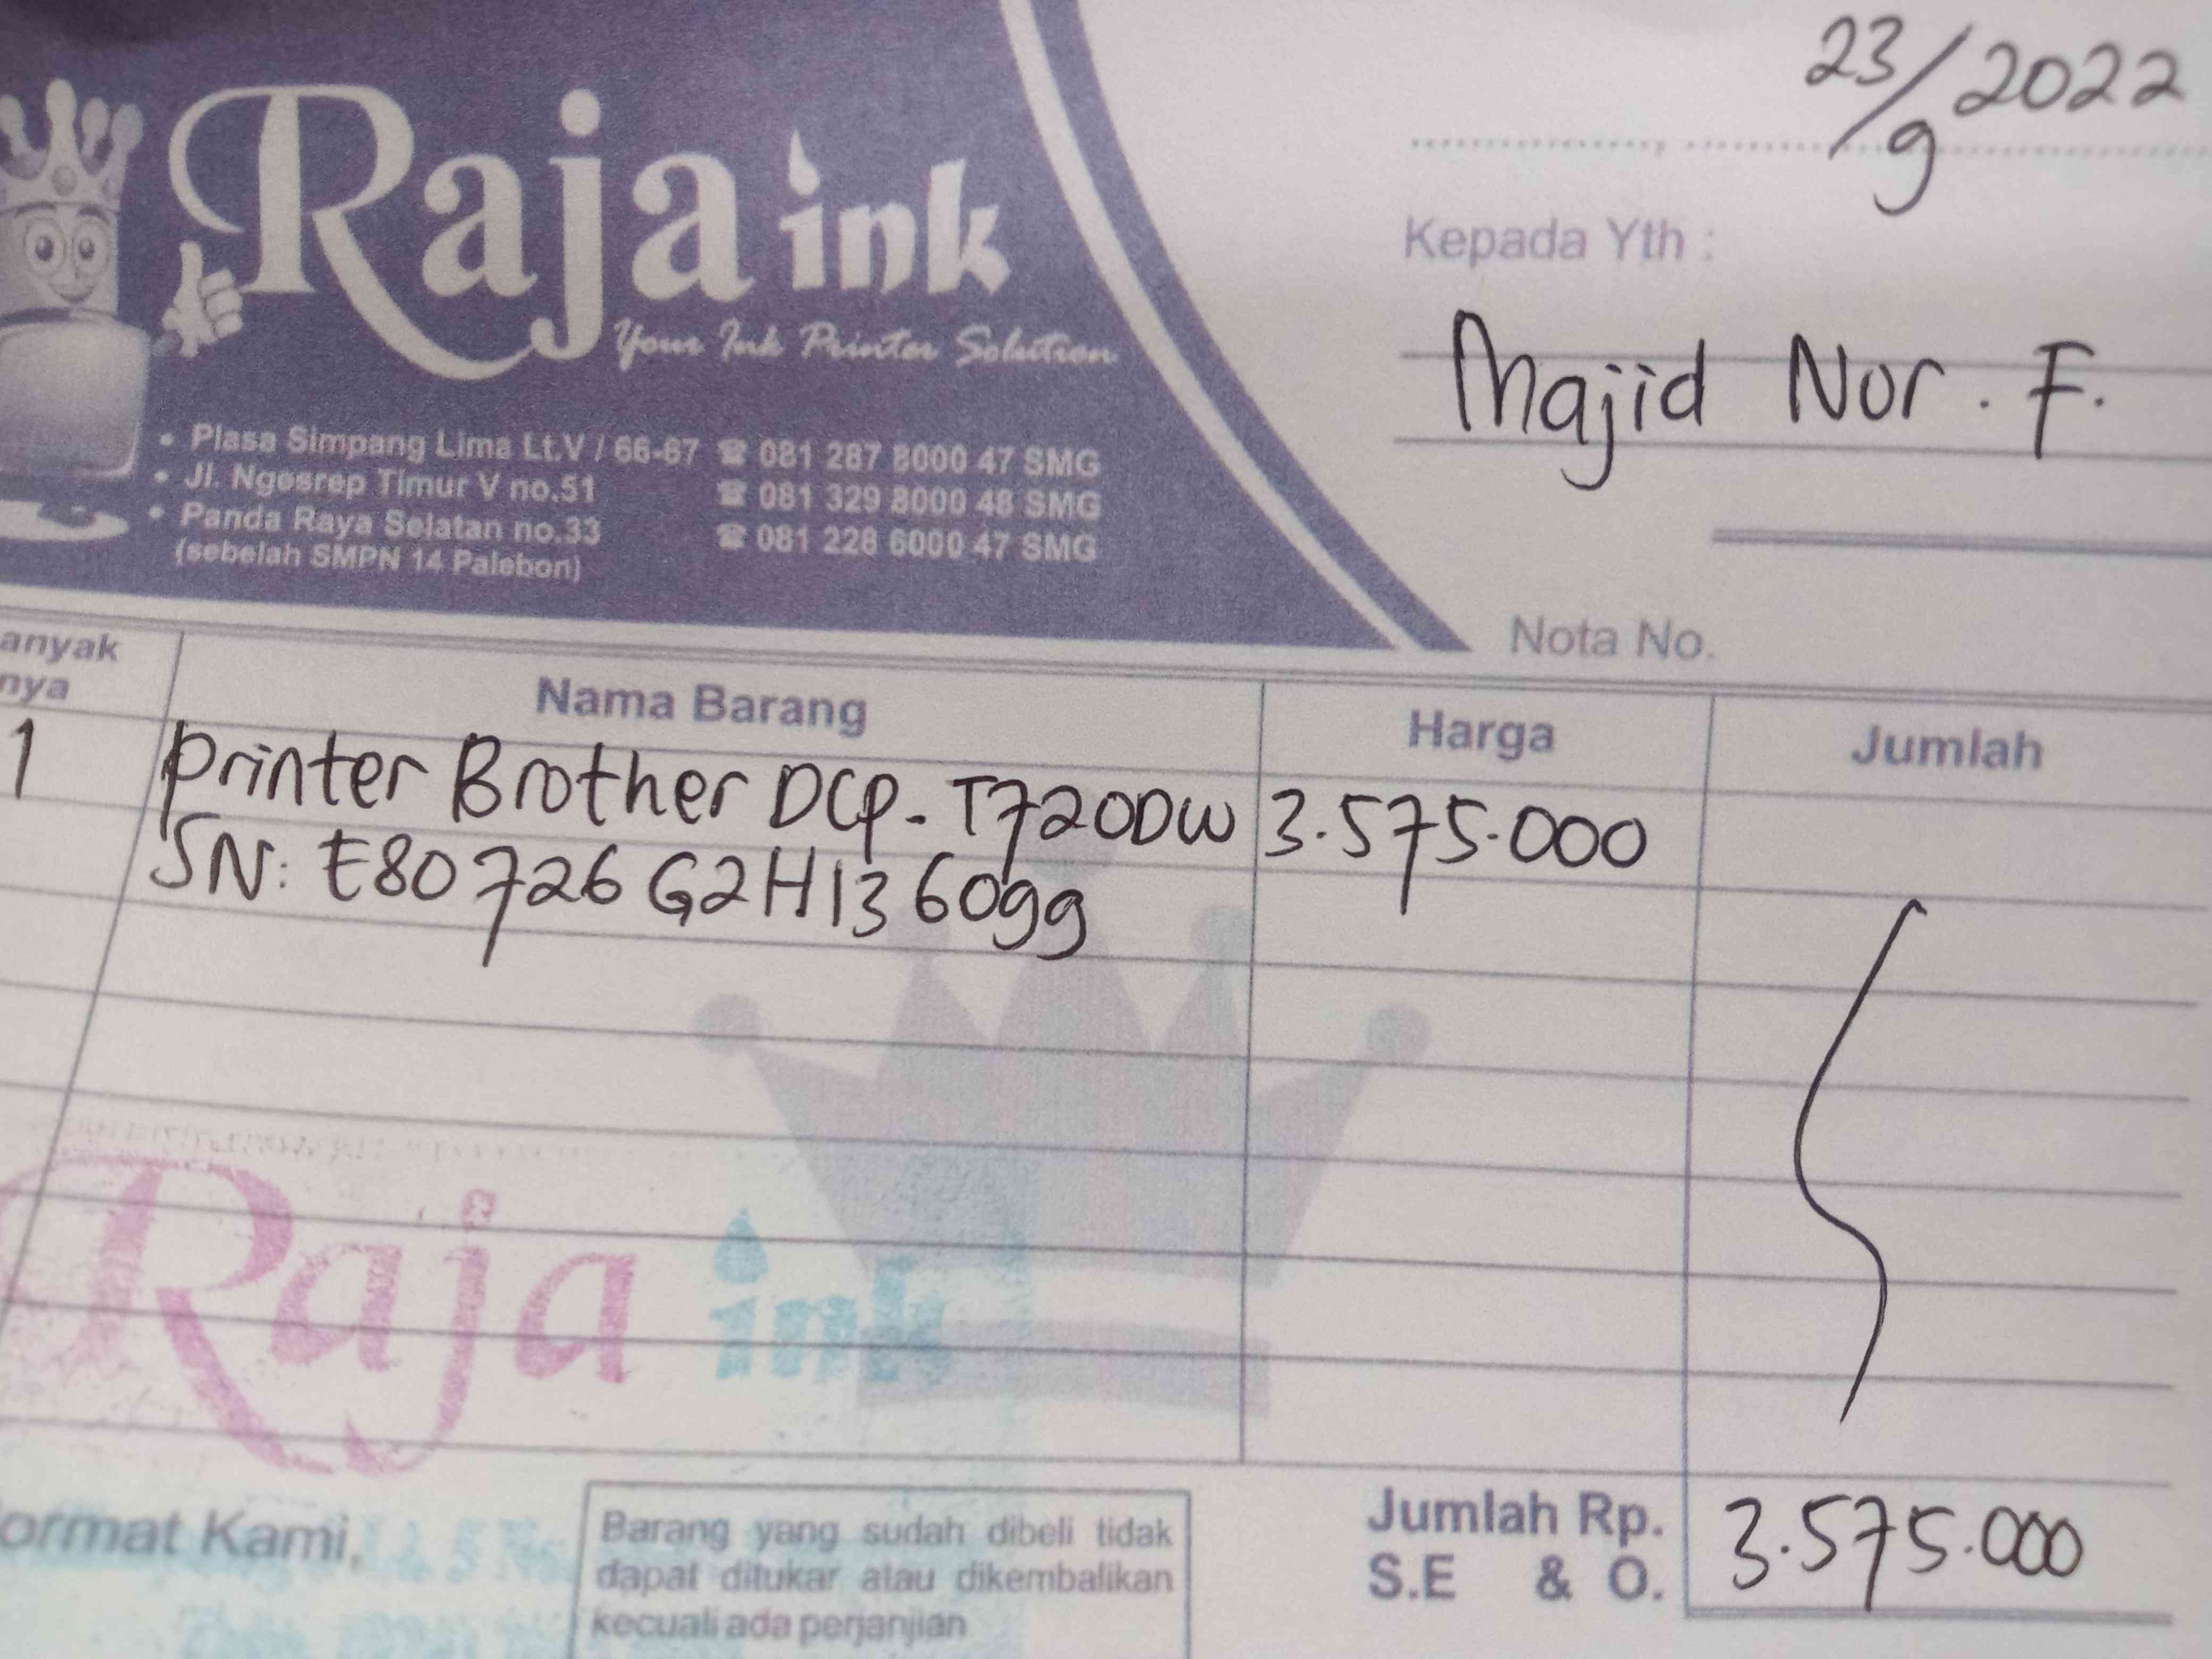 23/9 2022
Raja ink
Your Ink Printer Solution
Kepada Yth :
Majid Nor. F.
• Plasa Simpang Lima Lt.V / 66-67 ☎ 081 287 8000 47 SMG
• Jl. Ngesrep Timur V no.51 ☎ 081 329 8000 48 SMG
• Panda Raya Selatan no.33 ☎ 081 228 6000 47 SMG
(sebelah SMPN 14 Palebon)
Nota No.
anyak
nya
Nama Barang
Harga
Jumlah
1 Printer Brother DCP-T720DW 3.575.000
SN: E80726G2H136099
Raja ink
ormat Kami,
Barang yang sudah dibeli tidak
dapat ditukar atau dikembalikan
kecuali ada perjanjian
Jumlah Rp. 3.575.000
S.E & O.